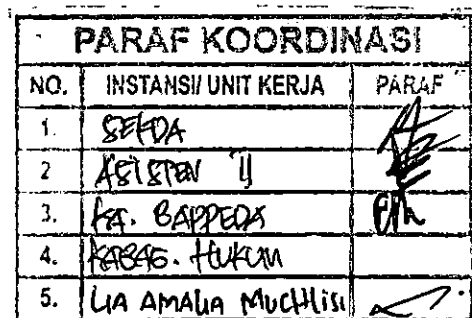 PARAF KOORDINASI
NO. INSTANSI/ UNIT KERJA PARAF
1. SEKDA
2 ASISTEN II
3. KA. BAPPEDA
4. KABAG. HUKUM
5. LIA AMALIA MUCHLISI